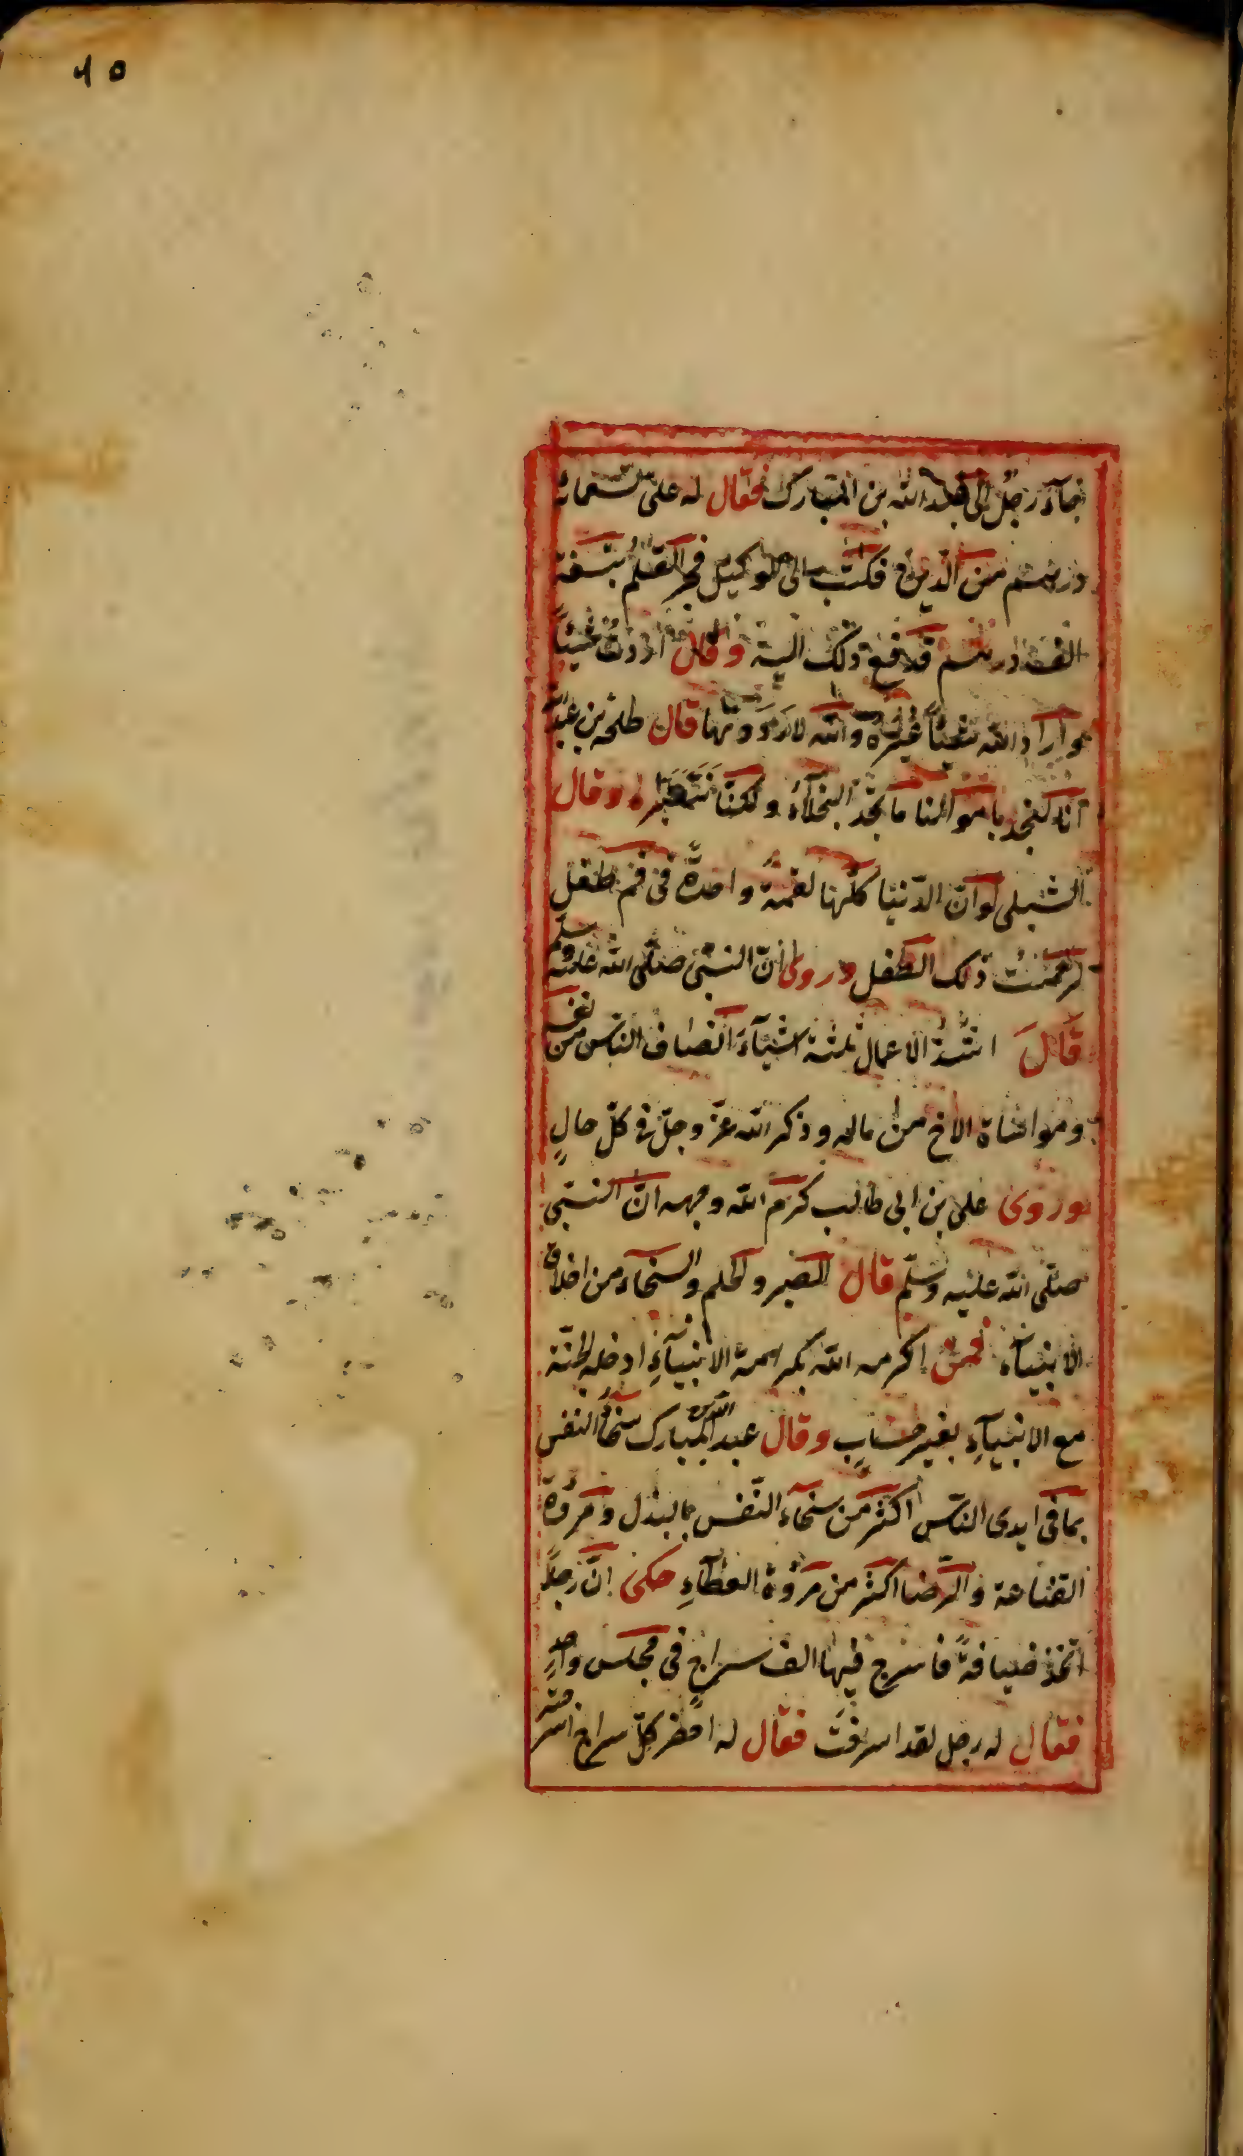 ٤٥
جآء رجل الى عبد الله بن المبارك فقال له علىّ تسعمائة
درهم من الدين فكتب الى الوكيل فجر القلم بتسعة
الف درهم فدفع ذلك اليه وقال اردتُ شيئاً
وارا د الله شيئاً غيره والله لازمَ وَدتّها قال طلحة بن عبد الله
انا لنجد باموالنا ما يجد البخلآء ولكنّا نتصَبَّر وقال
الشبلى لو انّ الدّنيا كلّها لقمةً واحدةً فى فم طفل
لرحمتُ ذلك الطفل وروى انّ النبىّ صلّى الله عليه وسلّم
قَالَ اشدُّ الاعمال ثلثة اشيآء انصاف الناس من نفسه
ومواساة الاخ من ماله وذكر الله عزّ وجلّ فى كلّ حالٍ
وروى على بن ابى طالب كرّم الله وجهه انّ النبىّ
صلّى الله عليه وسلّم قال الصبر والحلم والسخآء من اخلاق
الانبيآء فمن اكرمه الله بكرامة الانبيآءِ ادخله الجنّة
مع الانبيآءِ بغير حسابٍ وقال عبد الله بن المبارك سخآء النفس
بما فى ايدى النّاس اكثر من سخآء النّفس بالبذل ومروّة
القناعة والرّضا اكثر من مروّة العطآءِ حكى انّ رجلاً
اتّخذ ضيافةً فاسرج فيها الف سراجٍ فى مجلس واحدٍ
فقال له رجل لقد اسرفتَ فقال له احضر كلّ سراج اسرجته